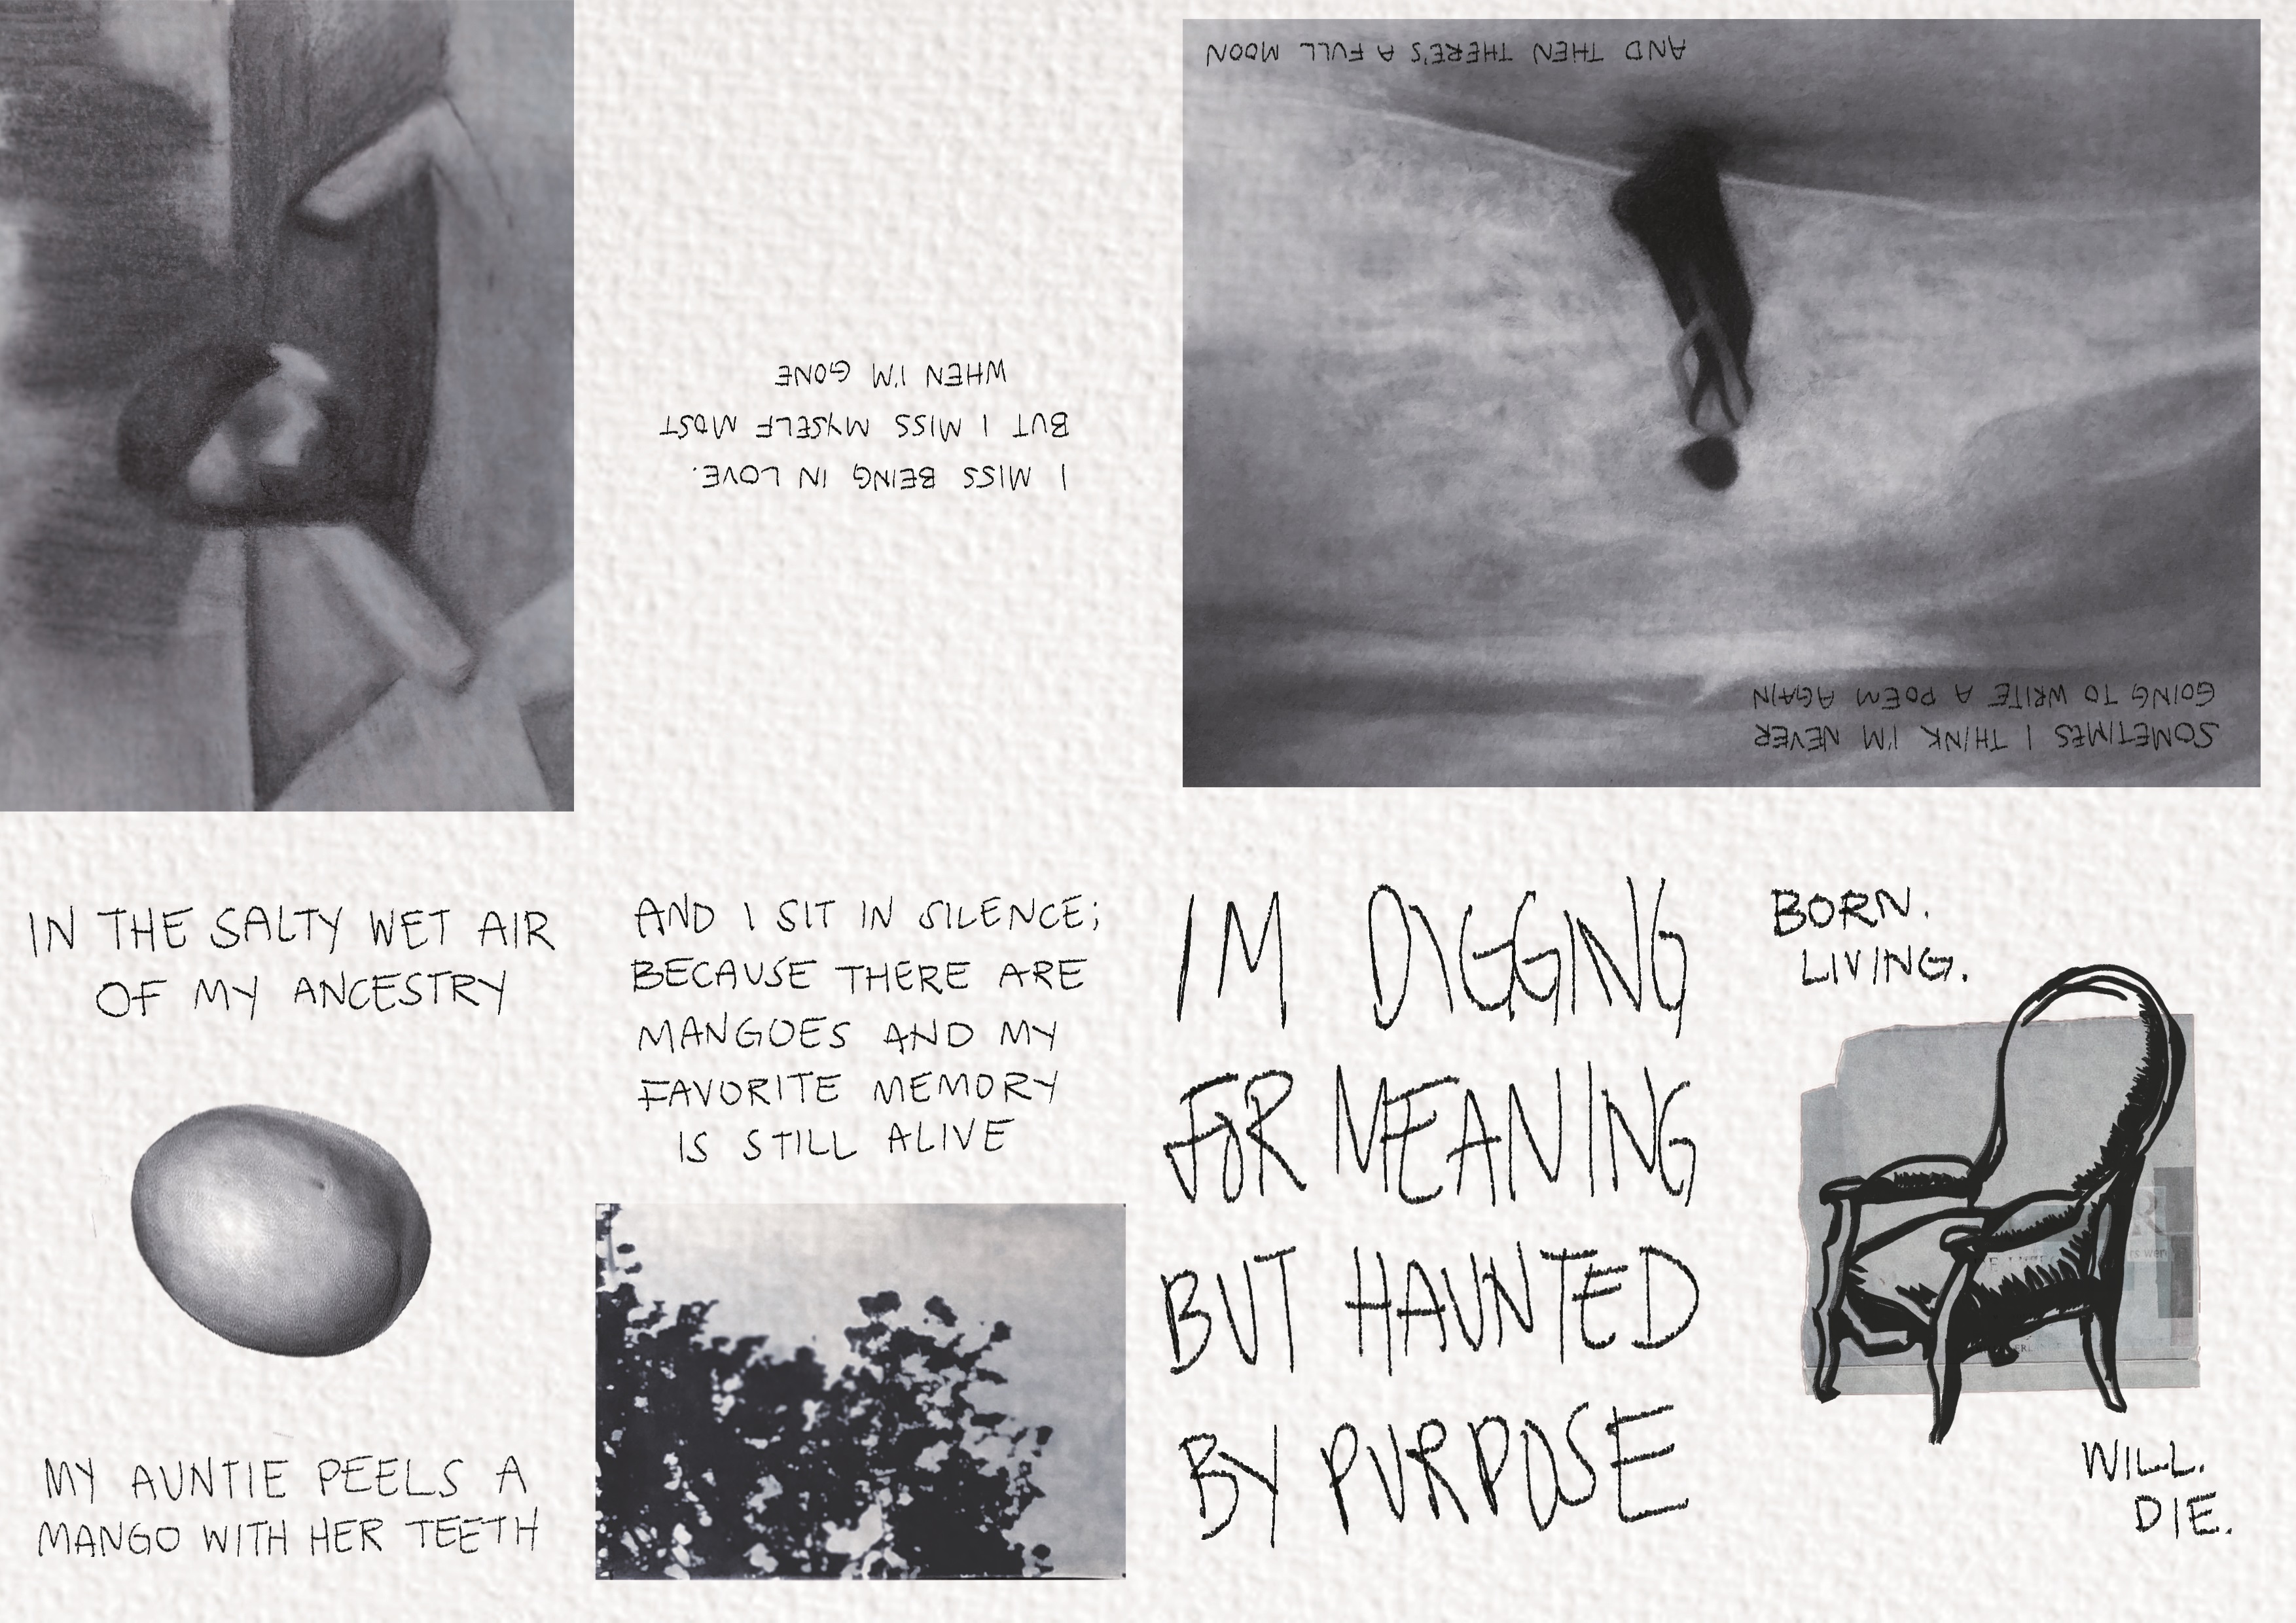 I MISS BEING IN LOVE.
BUT I MISS MYSELF MOST
WHEN I'M GONE
SOMETIMES I THINK I'M NEVER
GOING TO WRITE A POEM AGAIN
AND THEN THERE'S A FULL MOON
IN THE SALTY WET AIR
OF MY ANCESTRY
MY AUNTIE PEELS A
MANGO WITH HER TEETH
AND I SIT IN SILENCE;
BECAUSE THERE ARE
MANGOES AND MY
FAVORITE MEMORY
IS STILL ALIVE
IM DIGGING
FOR MEANING
BUT HAUNTED
BY PURPOSE
BORN.
LIVING.
WILL.
DIE.